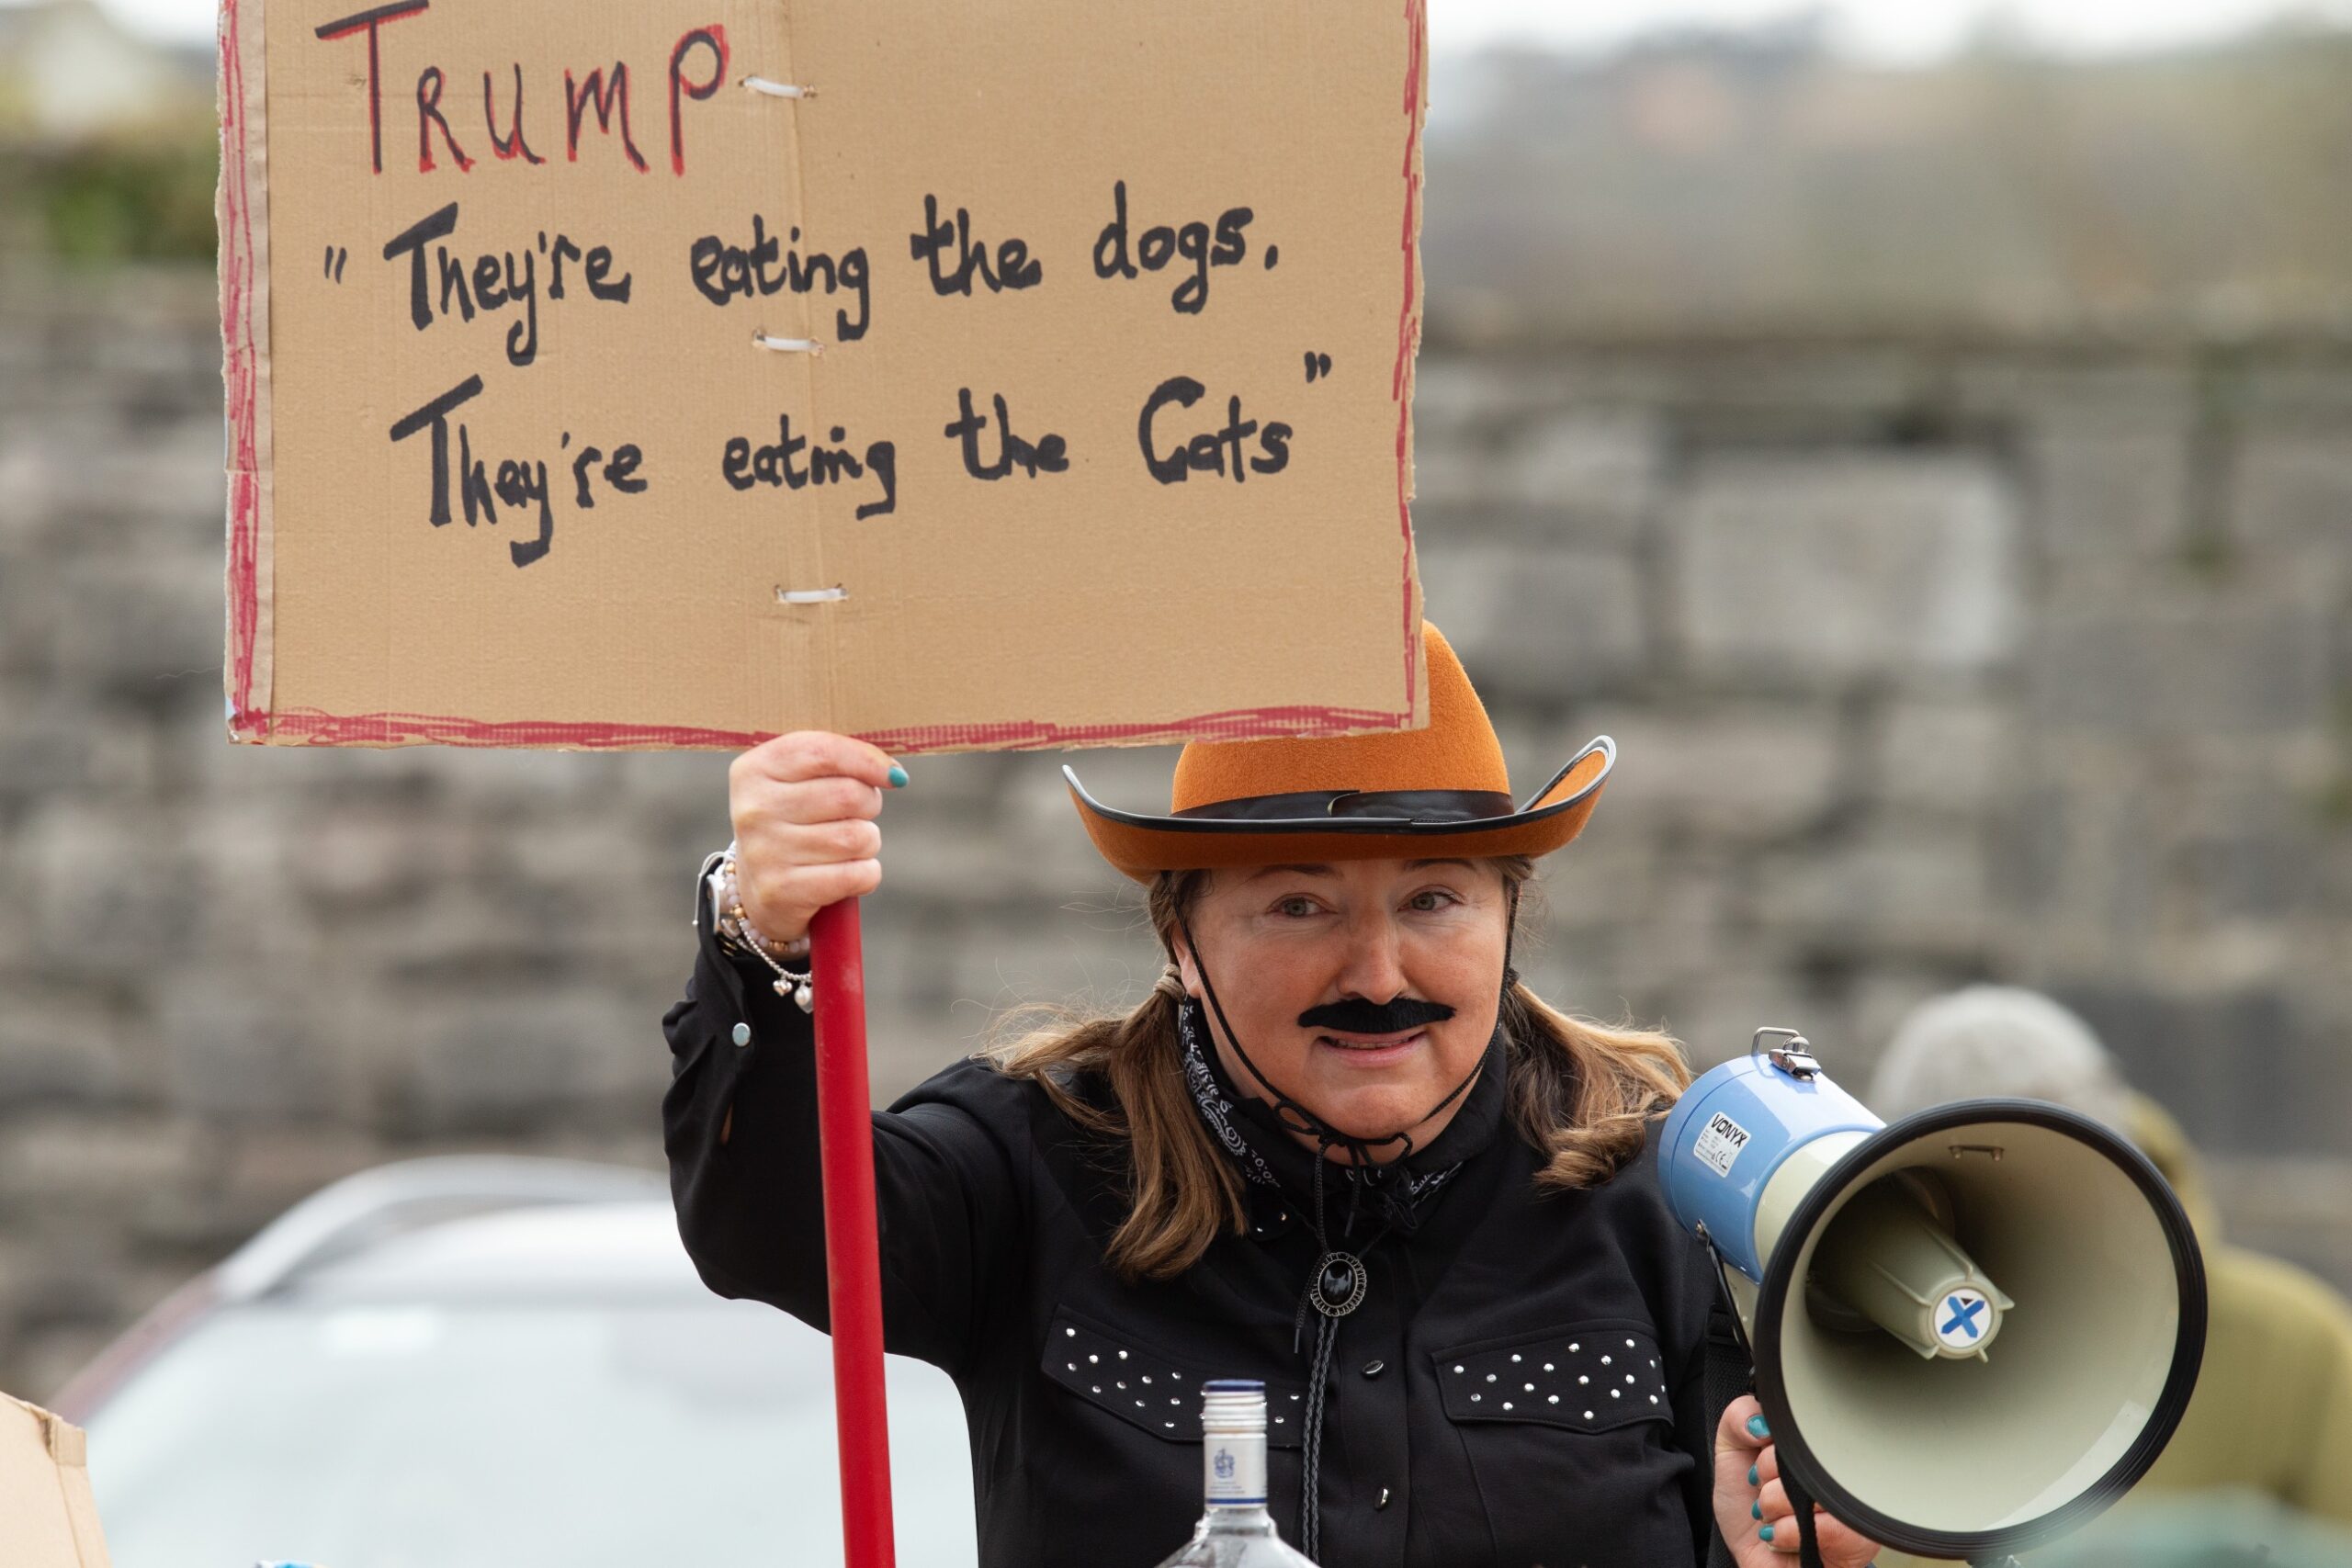 TRUMP
"They're eating the dogs.
They're eating the Cats"
VONYX